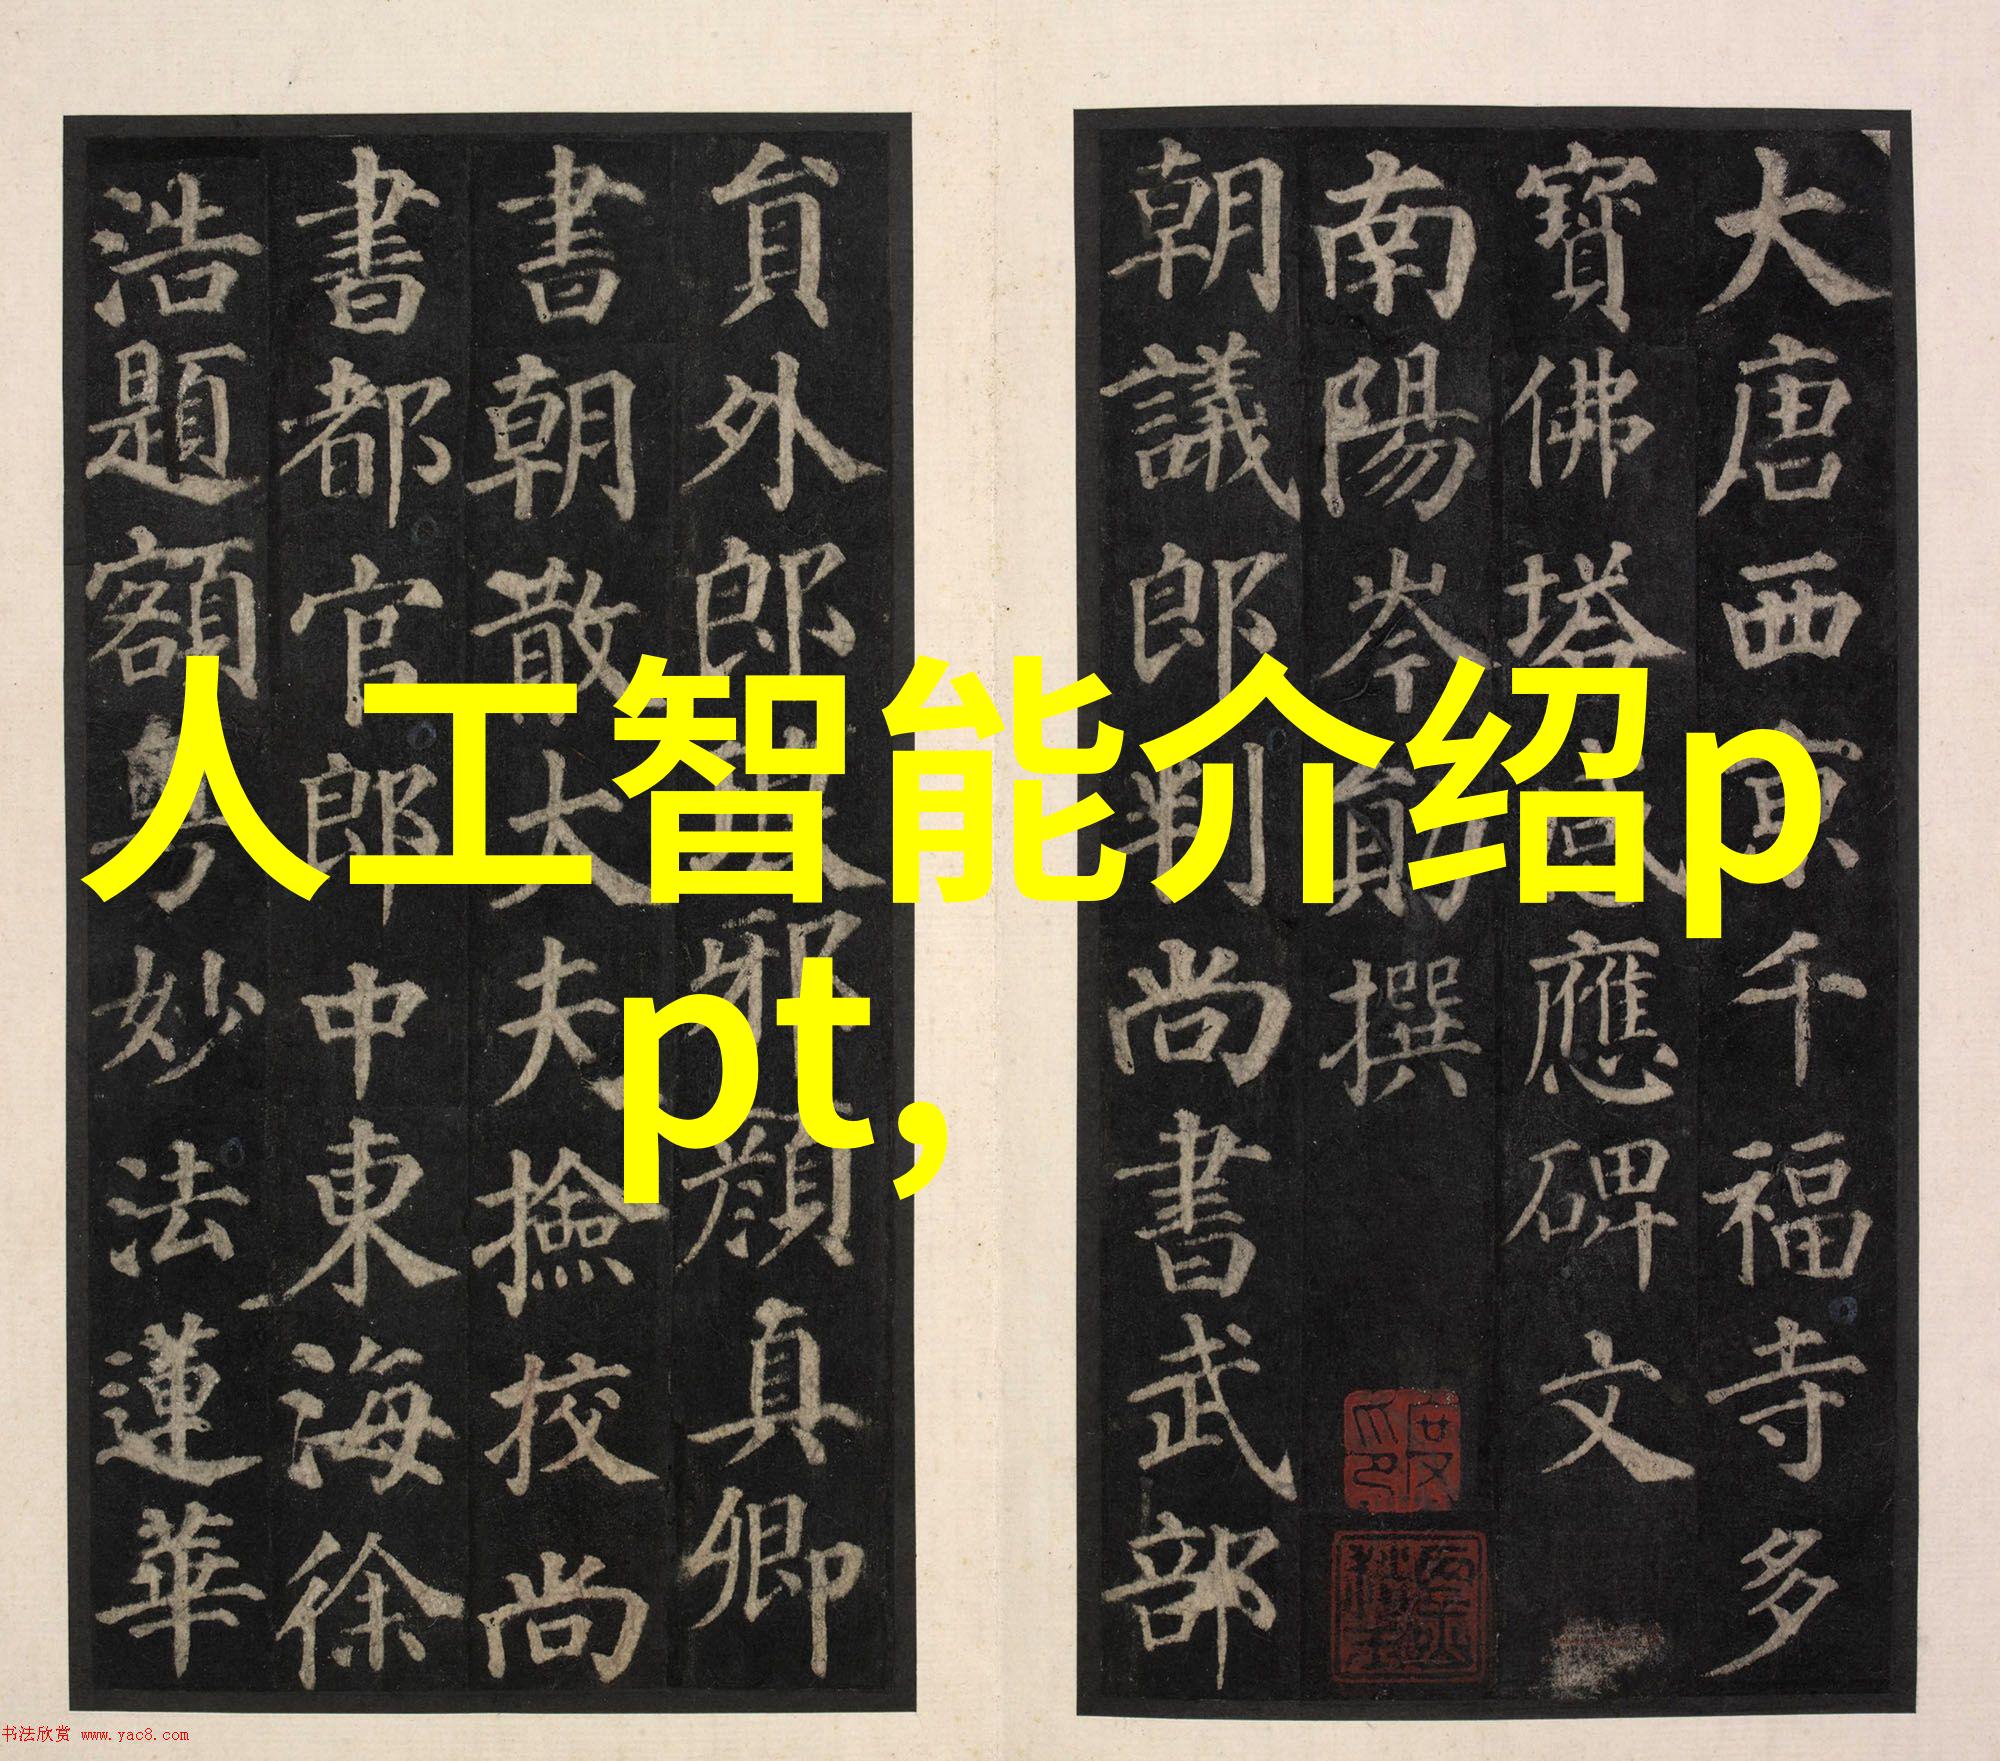 人工智能介绍p
pt,
大唐西京千福寺多
寶佛塔感應碑文
南陽岑勛撰
朝議郎判尚書武部
貟外郎琅邪顏真卿
書朝散大夫撿校尚
書都官郎中東海徐
浩題額粤妙法蓮華
书法欣赏 www.yac8.com